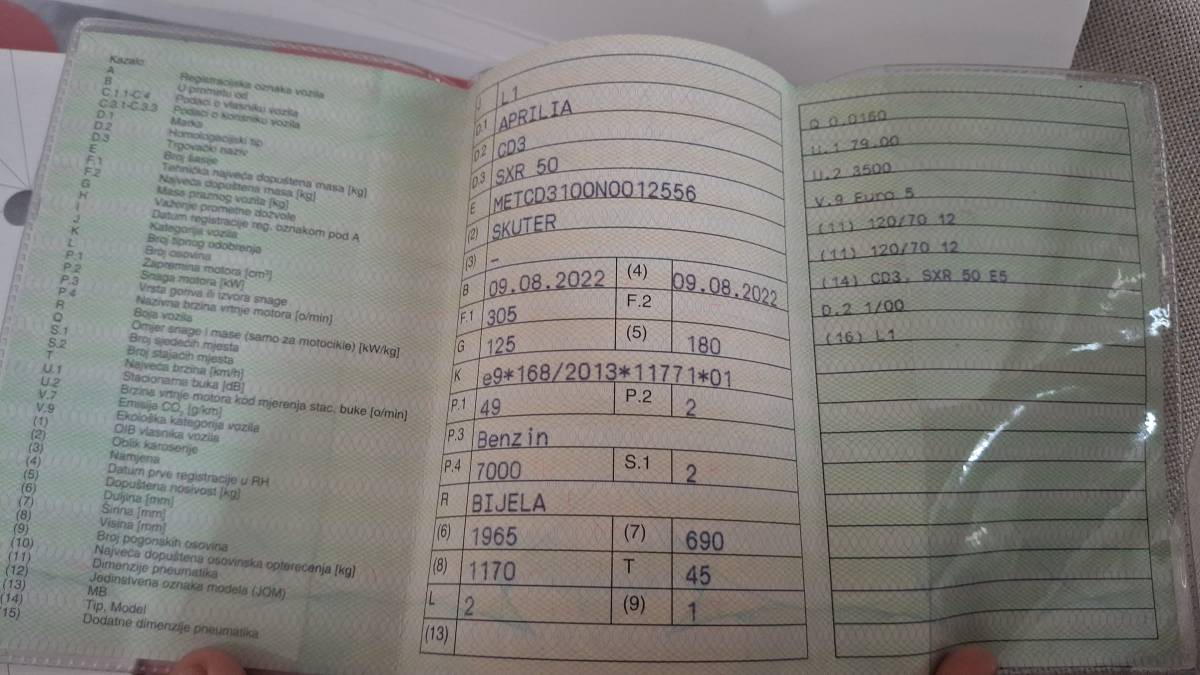 Kazalo:
A Registracijska oznaka vozila
B U prometu od
C.1.1-C.4 Podaci o vlasniku vozila
C.3.1-C.3.3 Podaci o korisniku vozila
D.1 Marka
D.2 Homologacijski tip
D.3 Trgovački naziv
E Broj šasije
F.1 Tehnička najveća dopuštena masa [kg]
F.2 Najveća dopuštena masa [kg]
G Masa praznog vozila [kg]
H Važenje prometne dozvole
I Datum registracije reg. oznakom pod A
J Kategorija vozila
K Broj tipnog odobrenja
L Broj osovina
P.1 Zapremina motora [cm³]
P.2 Snaga motora [kW]
P.3 Vrsta goriva ili izvora snage
P.4 Nazivna brzina vrtnje motora [o/min]
R Boja vozila
Q Omjer snage i mase (samo za motocikle) [kW/kg]
S.1 Broj sjedećih mjesta
S.2 Broj stajaćih mjesta
T Najveća brzina [km/h]
U.1 Stacionarna buka [dB]
U.2 Brzina vrtnje motora kod mjerenja stac. buke [o/min]
V.7 Emisija CO₂ [g/km]
V.9 Ekološka kategorija vozila
(1) OIB vlasnika vozila
(2) Oblik karoserije
(3) Namjena
(4) Datum prve registracije u RH
(5) Dopuštena nosivost [kg]
(6) Duljina [mm]
(7) Širina [mm]
(8) Visina [mm]
(9) Broj pogonskih osovina
(10) Najveća dopuštena osovinska opterećenja [kg]
(11) Dimenzije pneumatika
(12) Jedinstvena oznaka modela (JOM)
(13) MB
(14) Tip, Model
(15) Dodatne dimenzije pneumatika
J L1
D.1 APRILIA
D.2 CD3
D.3 SXR 50
E METCD3100N0012556
(2) SKUTER
(3) –
B 09.08.2022 (4) 09.08.2022
F.1 305 F.2
G 125 (5) 180
K e9*168/2013*11771*01
P.1 49 P.2 2
P.3 Benzin
P.4 7000 S.1 2
R BIJELA
(6) 1965 (7) 690
(8) 1170 T 45
L 2 (9) 1
(13)
Q 0.0160
U.1 79.00
U.2 3500
V.9 Euro 5
(11) 120/70 12
(11) 120/70 12
(14) CD3, SXR 50 E5
D.2 1/00
(16) L1